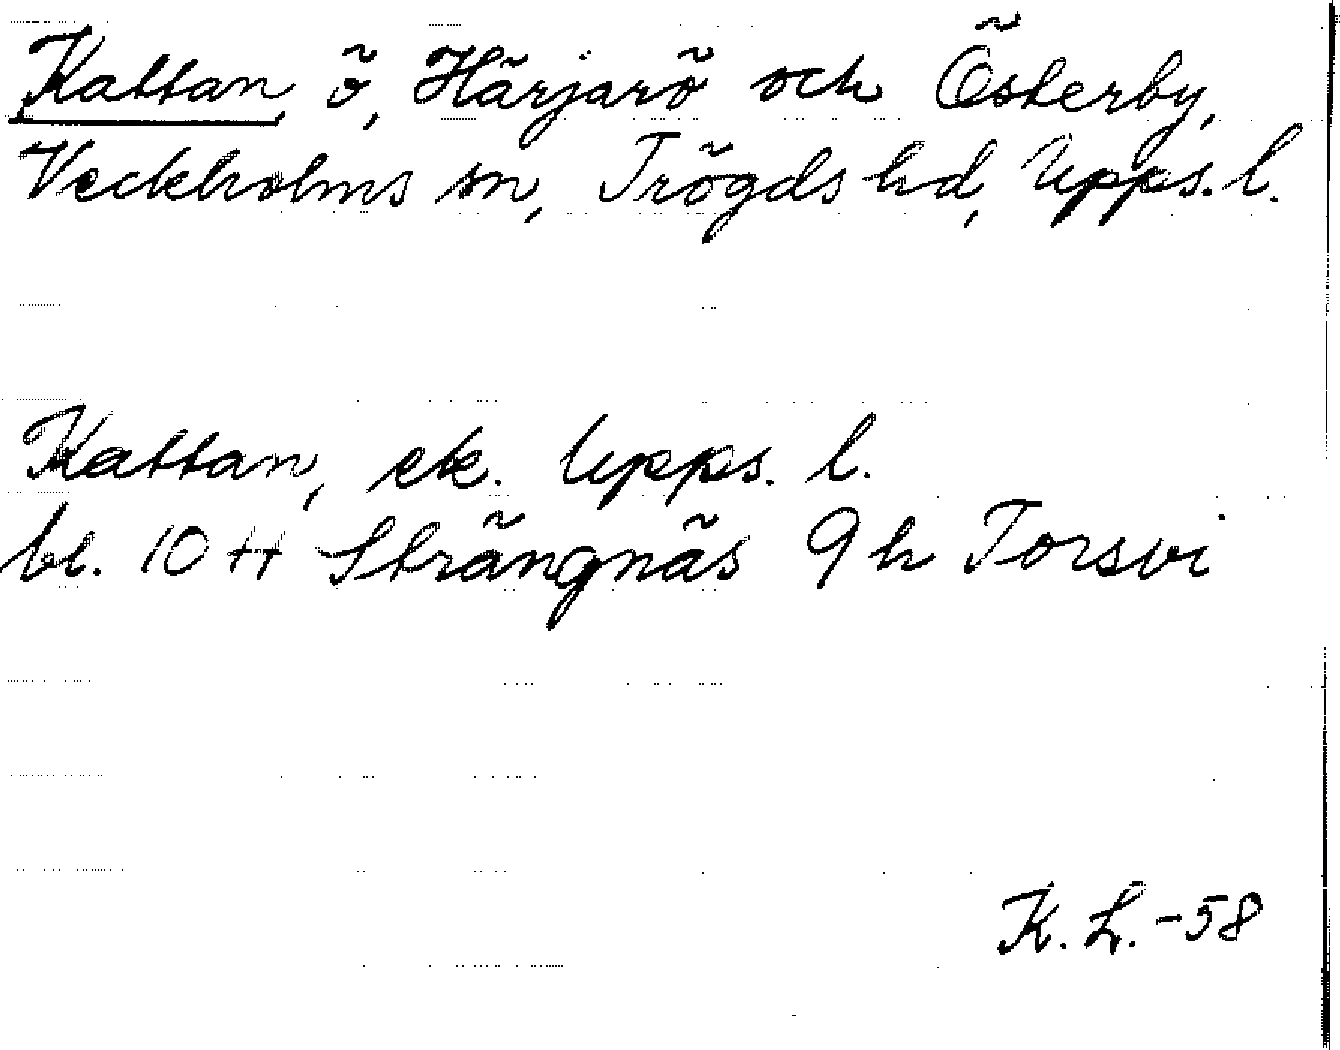 Kattan, ö, Härjarö och Österby,
Veckholms sn, Trögds hd, Upps. l.
Kattan, ek. Upps. l.
bl. 10 H Strängnäs 9 h Torsvi
K. L. -58